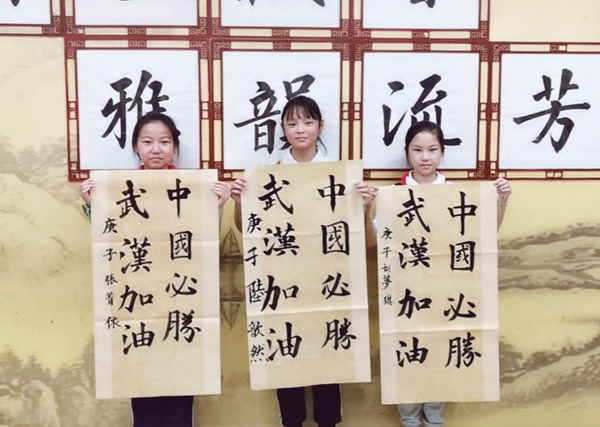 雅韻流芳
中國必勝
武漢加油
庚子張
中國必勝
武漢加油
庚子陸歆然
中國必勝
武漢加油
庚子刘夢琪